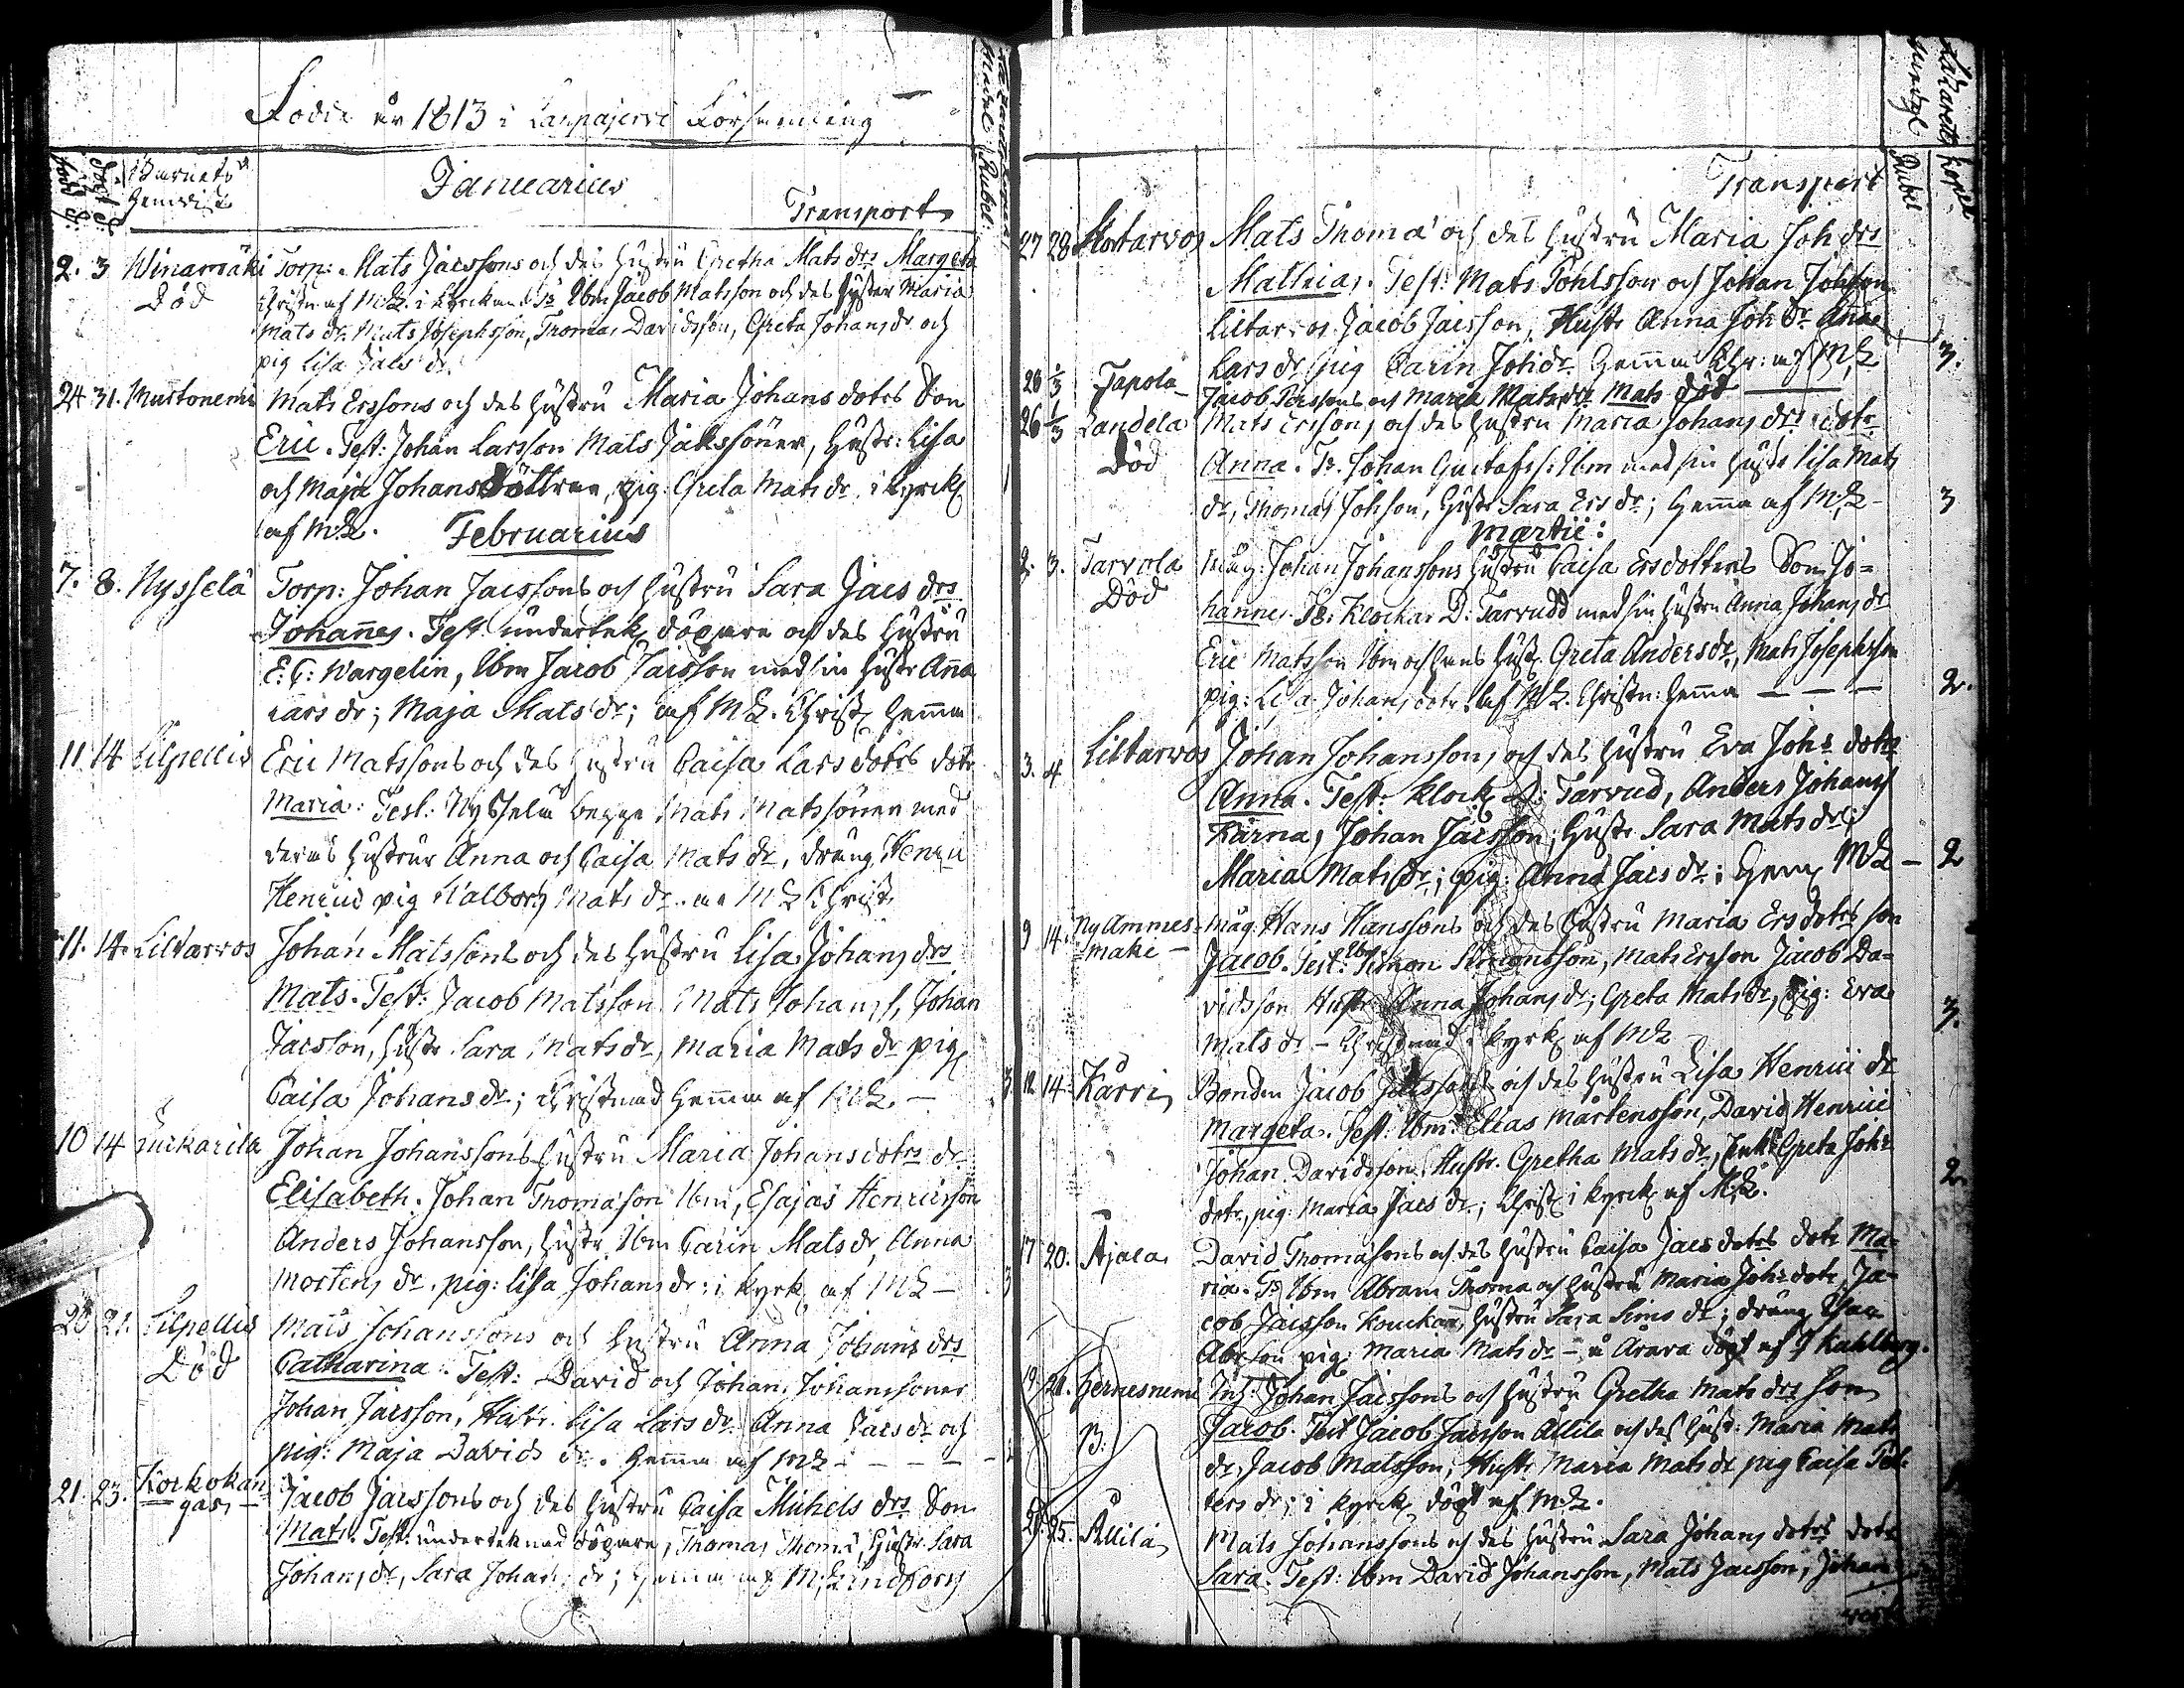 Födde år 1813 i Lappajervi Församling
född d:
döpt d:
Barnets
Hemvist
Januarius
Transport
Rubel
2. 3 Winamäki Torp: Mats Jacssons och des hustru Gretha Mats drs Margeta
Död Christn af M:L. i Kyrckan Ts Ibm Jacob Matsson och des hustru Maria
Mats dr Mats Josephsson, Thomas Davidsson, Greta Johans dr och
pig Lisa Jacs dr
24 31. Murtonemi Mats Erssons och des hustru Maria Johans dotrs Son
Eric. Test: Johan Larsson Mats Jakssöner, Hustr: Lisa
och Maja Johans döttrar, pig: Greta Mats dr i Kyrck
af M:L.
Februarius
7. 8. Nysselä Torp: Johan Jacssons och hustru Sara Jacs drs
Johannes. Test undertek döpare och des hustru
E: C: Wargelin, Ibm Jacob Jacsson med sin hustr Anna
Lars dr; Maja Mats dr; af M:L. Christ Hemma
11 14 Lilpellis Eric Matssons och des hustru Caisa Lars dotrs dotr
Maria: Test: Nysselä begge Mats Matssöner med
deras hustrur Anna och Caisa Mats dr, dräng Henric
Henrics pig Walborg Mats dr. M L Christ
11. 14. Liltarvos Johan Matssons och des hustru Lisa Johans drs
Mats. Test: Jacob Matsson Mats Johanss, Johan
Jacsson, hustr Sara Mats dr, Maria Mats dr pig
Caisa Johans dr; Christnad Hemma af M:L. —
10 14 Johan Johanssons hustru Maria Johans dotrs dr
Elisabeth. Johan Thomasson Ibm, Esajas Henricsson
Anders Johansson, hustr Ibm Carin Mats dr, Anna
Mortens dr. pig: Lisa Johans dr: i Kyrk af M L — 3
20 21. Lilpellis Mats Johanssons och hustru Anna Johans drs
Död Catharina. Test: David och Johan Johanssöner
Johan Jacsson, Hustr. Lisa Lars dr Anna Jacs dr och
pig: Maja Davids dr. Hemma af M L — — —
21. 23. Korkokan Jacob Jacssons och des hustru Caisa Michels drs Son
gas Mats. Test: underteknad döpare, Thomas Thoma, Hustr Sara
Johans dr, Sara Johans dr; Hemma af M: Lindfors
Transport
Rubel
27 28 Stortarvos Mats Thoma och des hustru Maria Joh drs
Mathias. Test: Mats Pohlsson och Johan Johsson
Liltarvos Jacob Jacsson, Hustr Anna Joh dr Anna
Lars dr pig Carin Joh dr Hemma Chr: af M:L 3.
26 1/3 Japola Jacob Perssons och Maria Mats drs Mats död
26 1/3 Landela Mats Erssons och des hustru Maria Johans drs dotr
Död Anna. Ts. Johan Gustafss: Ibm med sin hustr Lisa Mats
dr, Thomas Johsson, hustr Sara Ers dr; Hemma af M:L — 3
Martii:
2. 3. Tarvola Johan Johanssons hustru Caisa Ersdotters Son Jo=
Död hannes. Ts: Klockar D: Tarvudd med sin hustru Anna Johans dr
Eric Matsson Ibm och hans hust Greta Anders dr, Mats Josephsson
pig: Lisa Johans dotr. af M:L. Christn: Hemma — — — 2.
3. 4 Liltarvos Johan Johanssons och des hustru Eva Johs dotrs
Anna. Test: Klock D: Tarvud, Anders Johanss
Kärna, Johan Jacsson; hustr Sara Mats dr;
Maria Mats dr; pig: Anna Jacs dr: Hem M:L — 2
9 14. Ny Ammes= måg: Hans Hanssons och des hustru Maria Ers dotrs son
mäki — Jacob. Test: Ibm Simon Simonsson, Mats Ersson Jacob Da=
vidsson Hustr Anna Johans dr; Greta Mats dr, pig: Eva
Mats dr — Christnad i Kyrk af M L 3.
12. 14. Kärri Bonden Jacob Jacssons och des hustru Lisa Henrici dr
Margeta. Test: Ibm: Elias Mårtensson, David Henrici
Johan Davidsson. Hustr. Gretha Mats dr, Enk: Greta Johs
dotr, pig: Maria Jacs dr; Christ i Kyrck af M:L. 2.
17 20. Ajala David Thomassons och des hustru Caisa Jacs dotrs dotr Ma=
ria. Ts Ibm Abram Thoma och hustru Maria Johs dotr, Ja=
cob Jacsson Knuckan, hustru Sara Sims dr; dräng
Abrson pig: Maria Mats dr — döpt af J Kahlberg.
19. 21. Hernesnemi Inh: Johan Jacssons och hustru Gretha Mats drs Son
B: Jacob. Test Jacob Jacsson Allila och des hust: Maria Mats
dr, Jacob Matsson, Hustr Maria Mats dr pig Caisa Pet=
ters dr; i Kyrck döpt af M:L.
21. 25. Allila Mats Johanssons och des hustru Sara Johans dotrs dotr
Sara. Test: Ibm David Johansson, Mats Jacsson, Johan